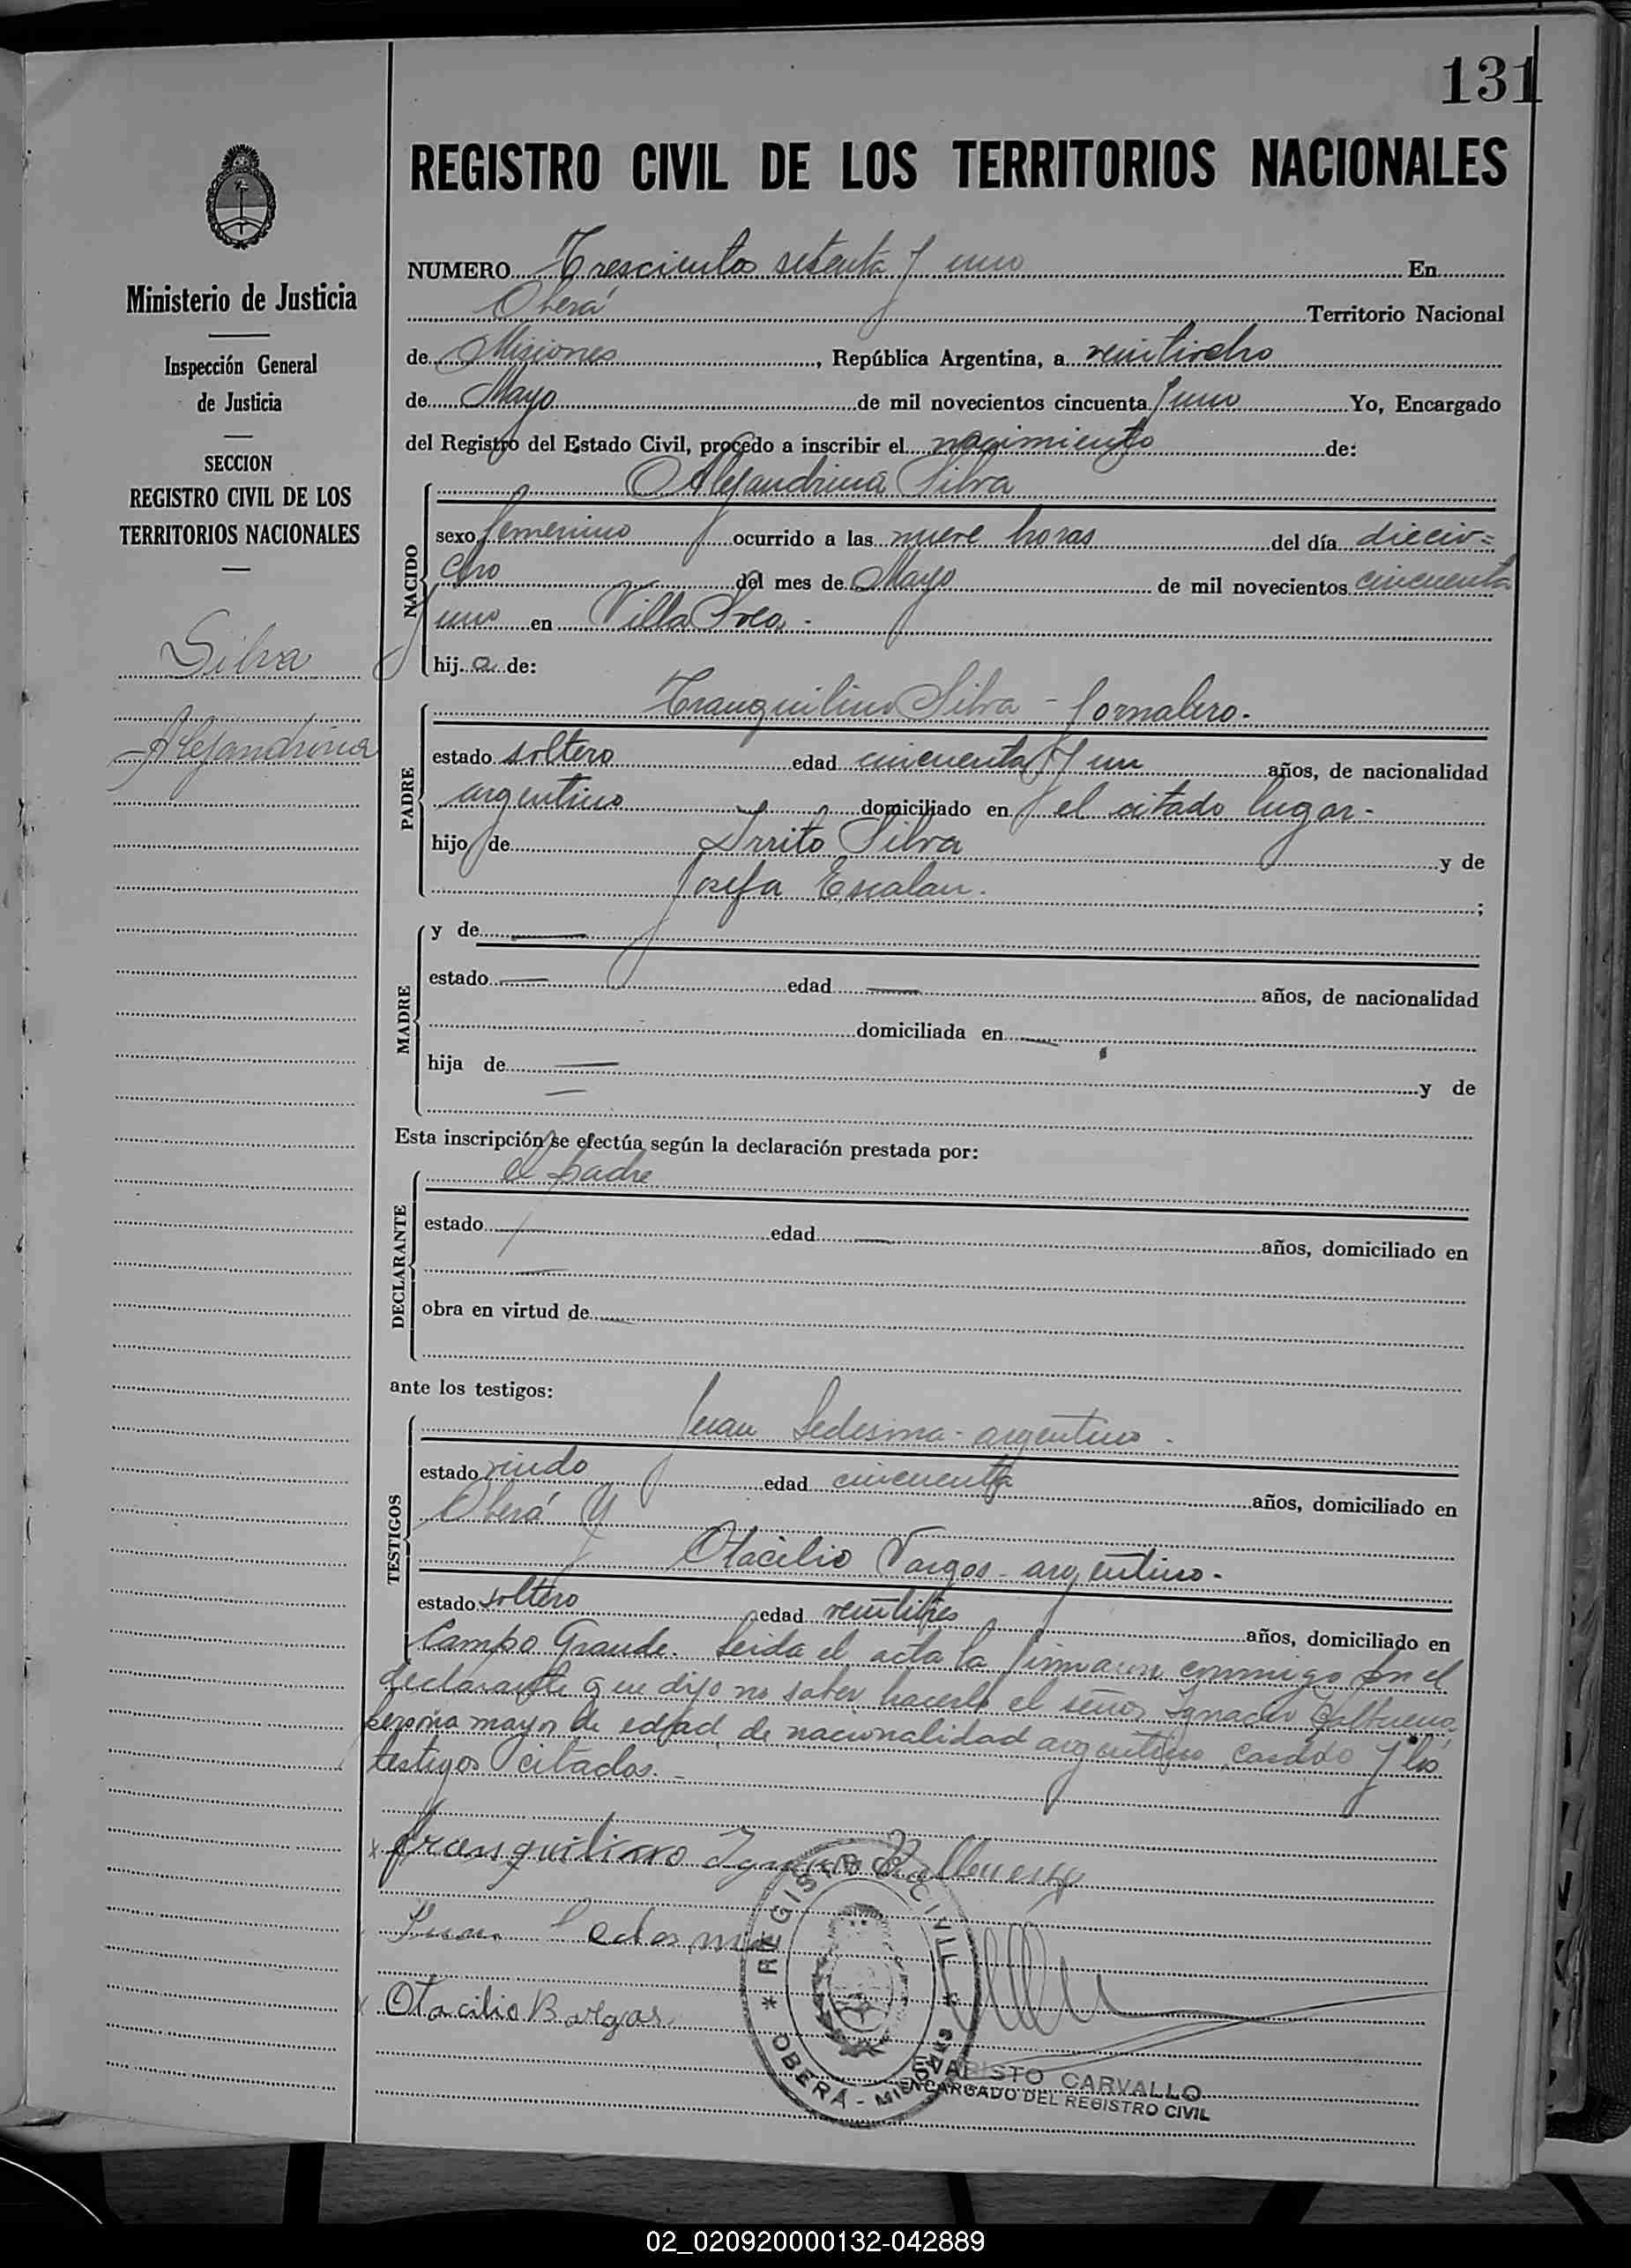 131
REGISTRO CIVIL DE LOS TERRITORIOS NACIONALES
Ministerio de Justicia
Inspección General
de Justicia
SECCION
REGISTRO CIVIL DE LOS
TERRITORIOS NACIONALES
Silva
Alejandrina
NUMERO Trescientos setenta y uno En
Oberá Territorio Nacional
de Misiones, República Argentina, a veintiocho
de Mayo de mil novecientos cincuenta y uno Yo, Encargado
del Registro del Estado Civil, procedo a inscribir el nacimiento de:
NACIDO
Alejandrina Silva
sexo femenino ocurrido a las nueve horas del día diecio=
cho del mes de Mayo de mil novecientos cincuenta
y uno en Villa Svea.-
hija de:
PADRE
Tranquilino Silva - Jornalero.
estado soltero edad cincuenta y un años, de nacionalidad
argentino domiciliado en el citado lugar-
hijo de Silva y de
Josefa Escalan.;
MADRE
y de —
estado — edad — años, de nacionalidad
domiciliada en —
hija de — y de
—
Esta inscripción se efectúa según la declaración prestada por:
DECLARANTE
el padre
estado — edad — años, domiciliado en
—
obra en virtud de —
ante los testigos:
TESTIGOS
Juan Ledesma - argentino -
estado viudo edad cincuenta años, domiciliado en
Oberá y
Otacilio Vargos - argentino.
estado soltero edad veintitres años, domiciliado en
Campo Grande. Leida el acta la firmaron conmigo por el
declarante que dijo no saber hacerlo el señor Ignacio Balbuena,
persona mayor de edad, de nacionalidad argentino, casado y los
testigos citados.-
x Tranquilino Ignacio Balbuena
Juan Ledesma
x Otacilio Bargas
REGISTRO CIVIL * OBERÁ - MISIONES *
EVARISTO CARVALLO
ENCARGADO DEL REGISTRO CIVIL
02_020920000132-042889